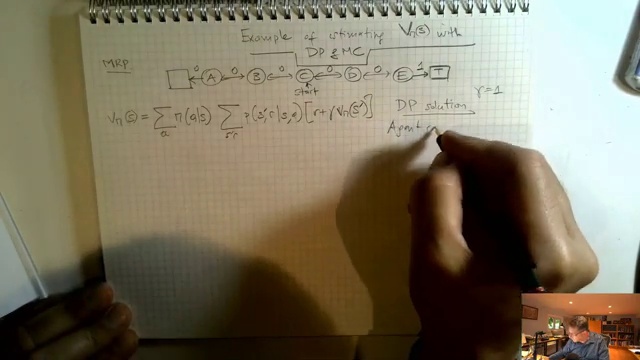 Example of estimating Vπ(s) with
DP & MC
MRP
0 0 0 0 0 1
A B C D E T
start
Vπ(s) = Σ_a π(a|s) Σ_{s',r} p(s',r|s,a) [r + γ Vπ(s')]
DP solution γ = 1
Agent